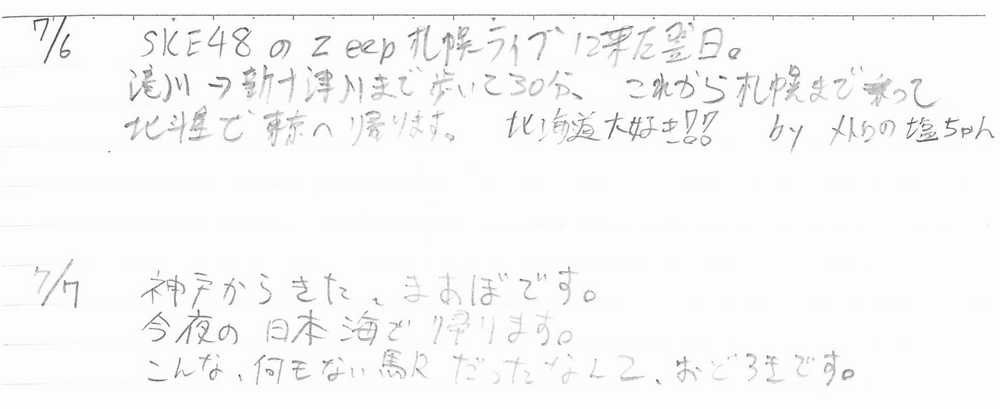 7/6 SKE48のZeep札幌ライブに来た翌日。
滝川→新十津川まで歩いて30分、これから札幌まで乗って
北斗星で東京へ帰ります。 北海道大好き!?!? by メトロの塩ちゃん
7/7 神戸からきた、まあぼです。
今夜の日本海で帰ります。
こんな、何もない駅だったなんて、おどろきです。